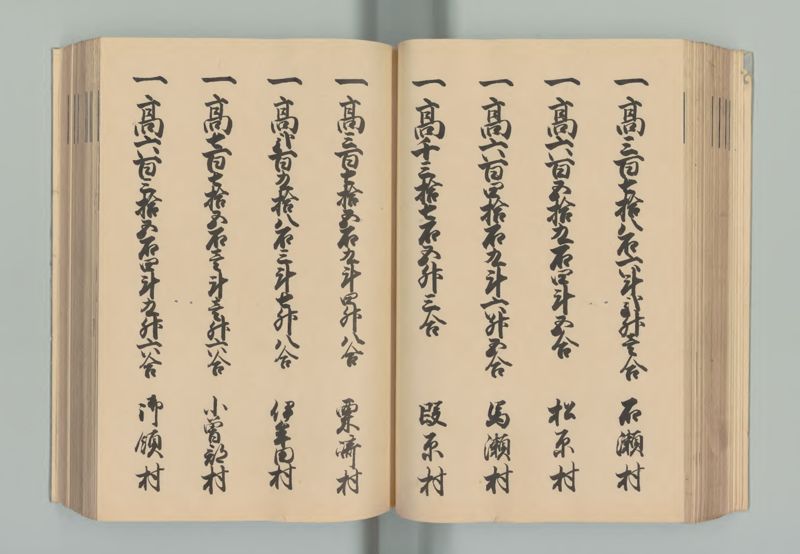 一高三百七拾八石六斗弐升壱合 石瀬村
一高六百五拾九石四斗五合 松原村
一高六百四拾石九斗六升五合 馬瀬村
一高千三拾七石五升三合 段原村
一高三百七拾五石九斗四升八合 粟崎村
一高弐百九拾八石三斗七升八合 伊牟田村
一高七百七拾五石壱斗壱升六合 小曽部村
一高六百三拾五石四斗九升六合 御領村